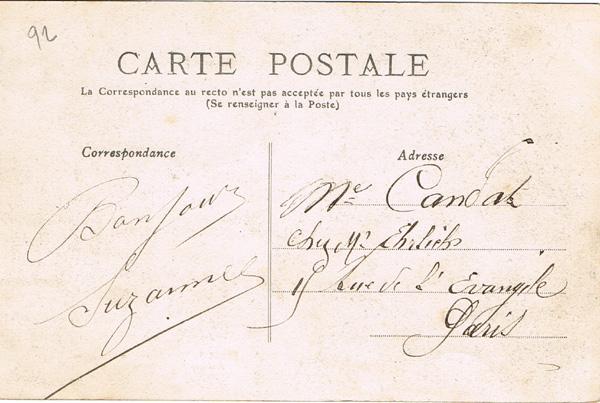 92
CARTE POSTALE
La Correspondance au recto n'est pas acceptée par tous les pays étrangers
(Se renseigner à la Poste)
Correspondance
Adresse
Bonjour
Suzanne
Me
chez Mr Ehrlich
Rue de l'Evangile
Paris